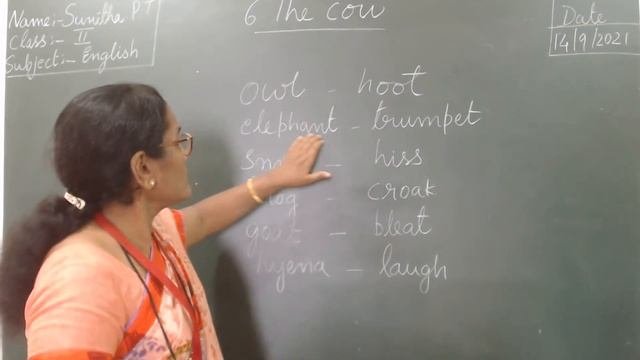 Name:-Sunitha PT
Class:- II
Subject:- English
6 The cow
Date
14/9/2021
owl - hoot
elephant - trumpet
- hiss
- croak
goat - bleat
hyena - laugh